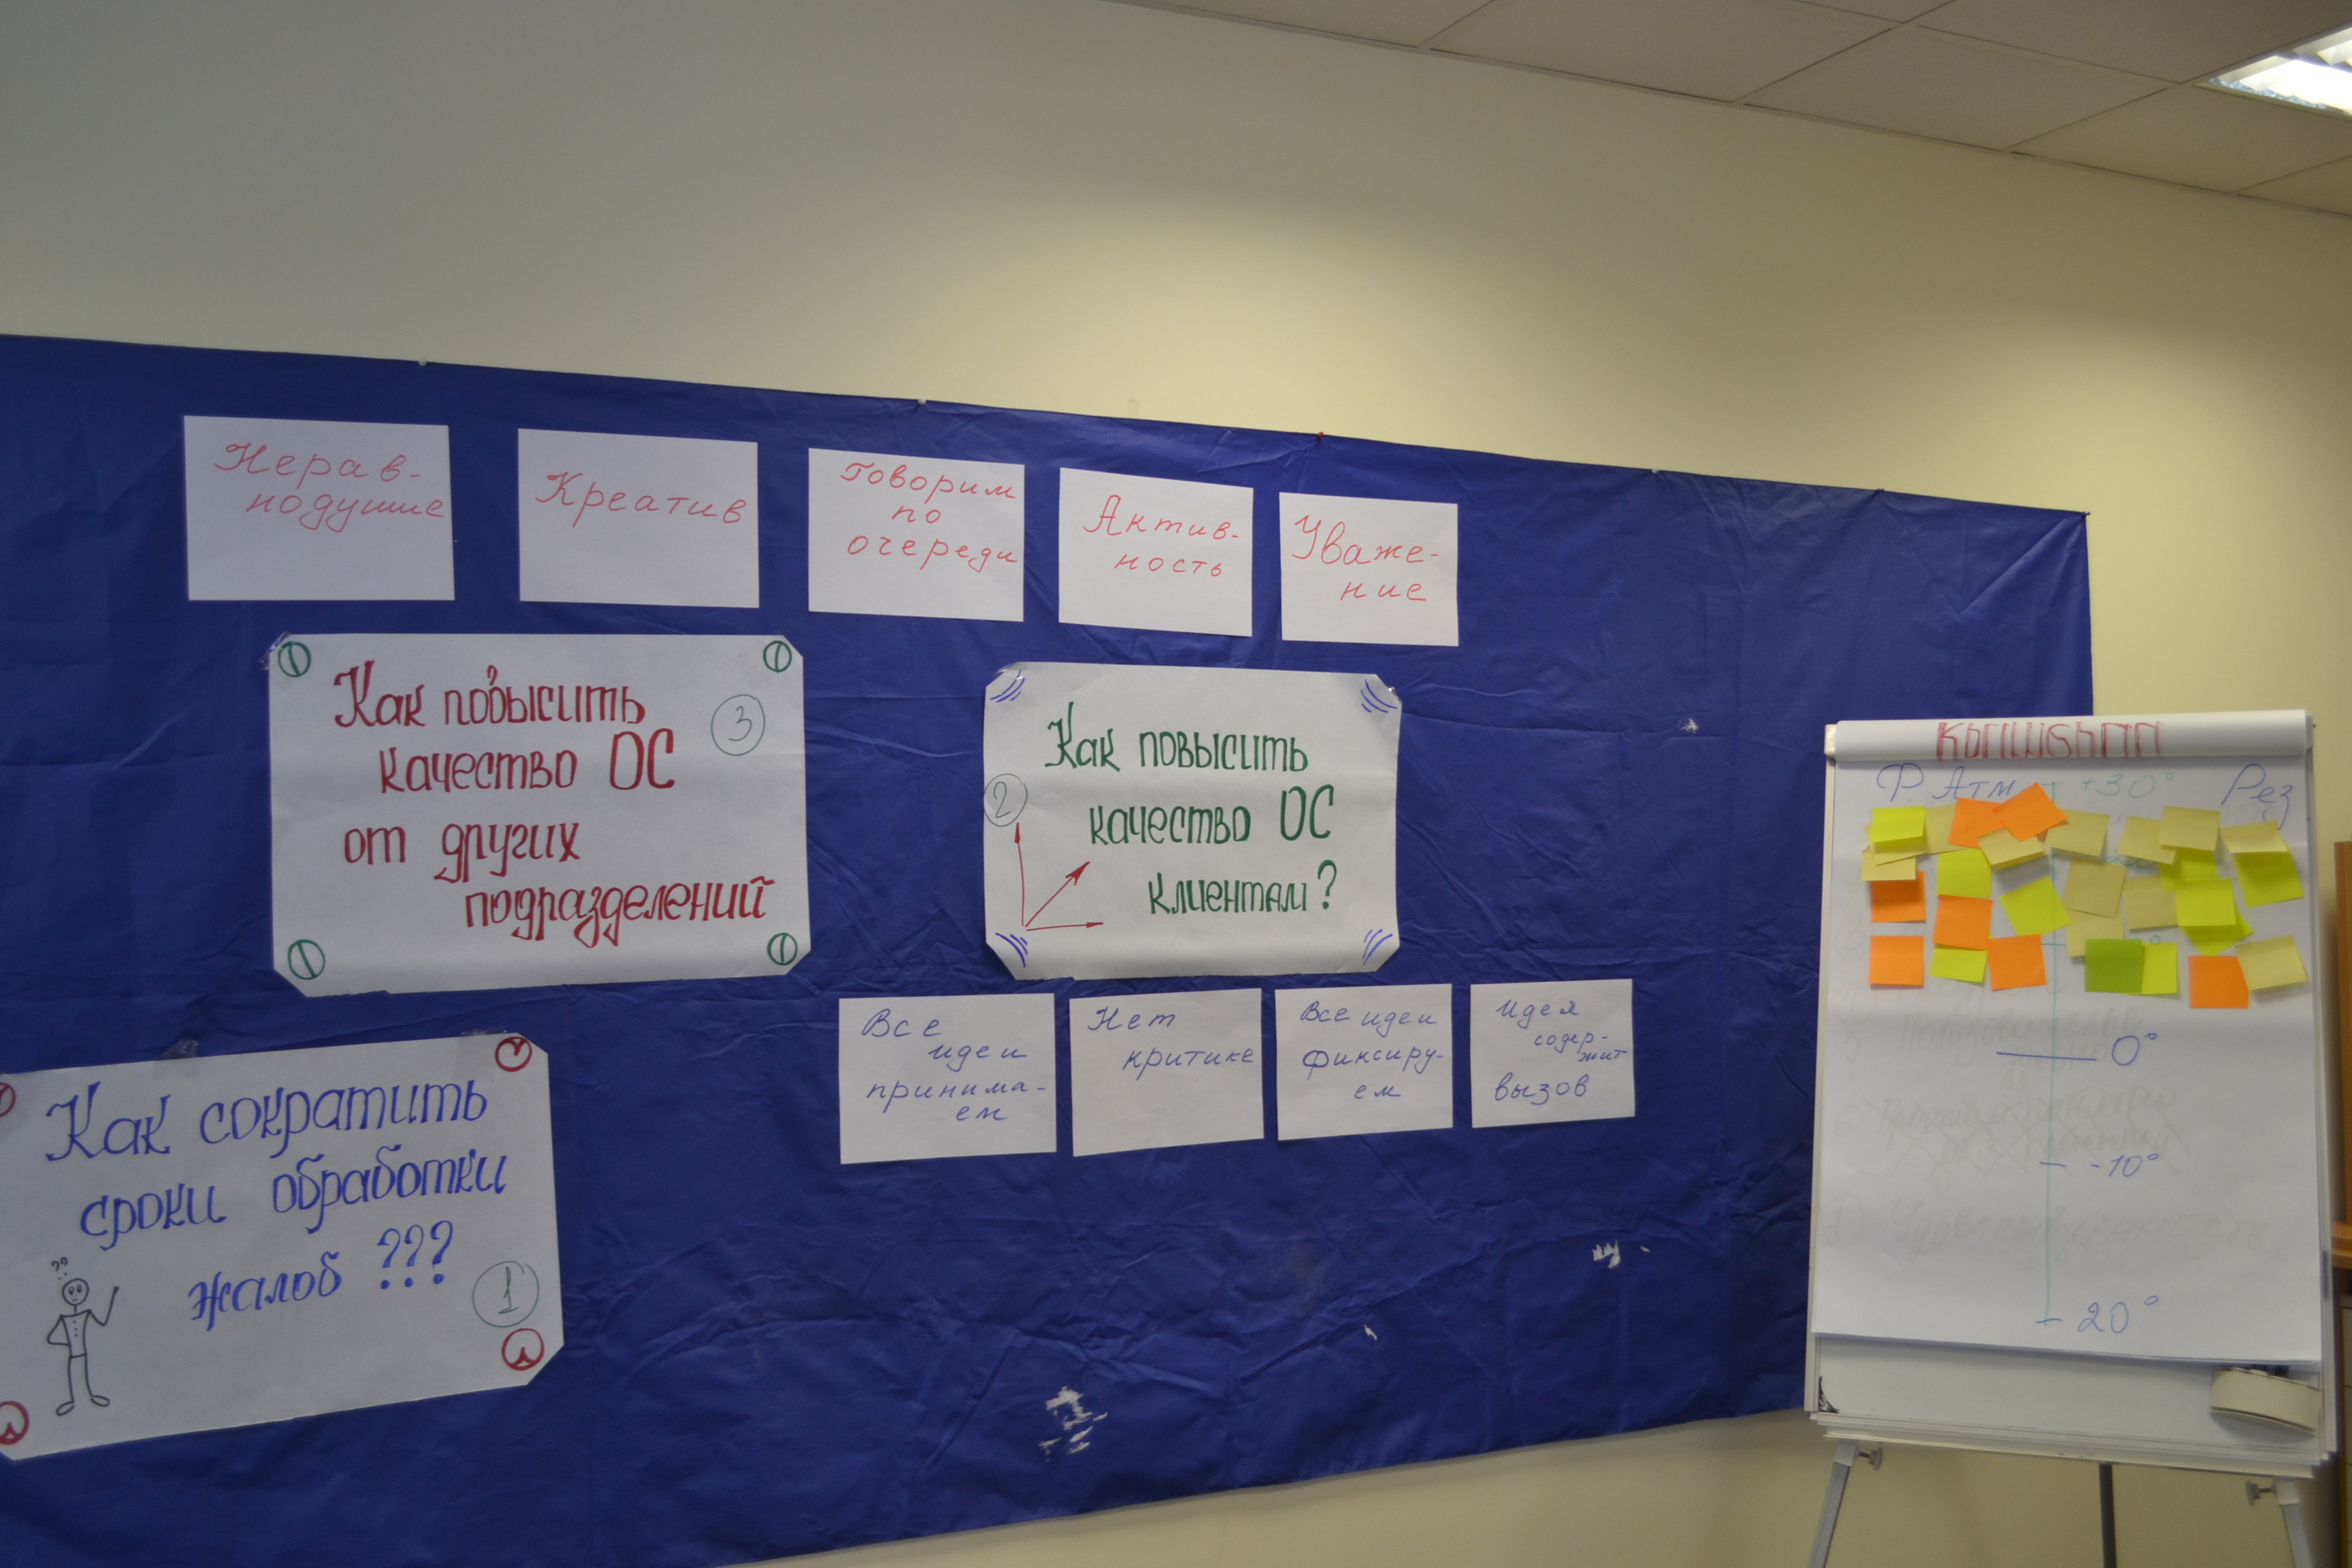 Нерав-
нодушие
Креатив
Говорим
по
очереди
Актив-
ность
Уваже-
ние
Как повысить
качество ОС
от других
подразделений
3
Как повысить
качество ОС
клиентам?
2
Все
идеи
принима-
ем
Нет
критике
Все идеи
фиксиру-
ем
Идея
содер-
жит
вызов
Как сократить
сроки обработки
жалоб ???
1
Ф. Атм +30° Рез
0°
-10°
- 20°